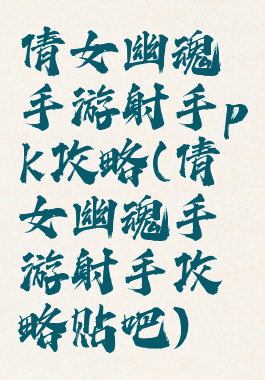 倩女幽魂
手游射手p
k攻略(倩
女幽魂手
游射手攻
略贴吧)